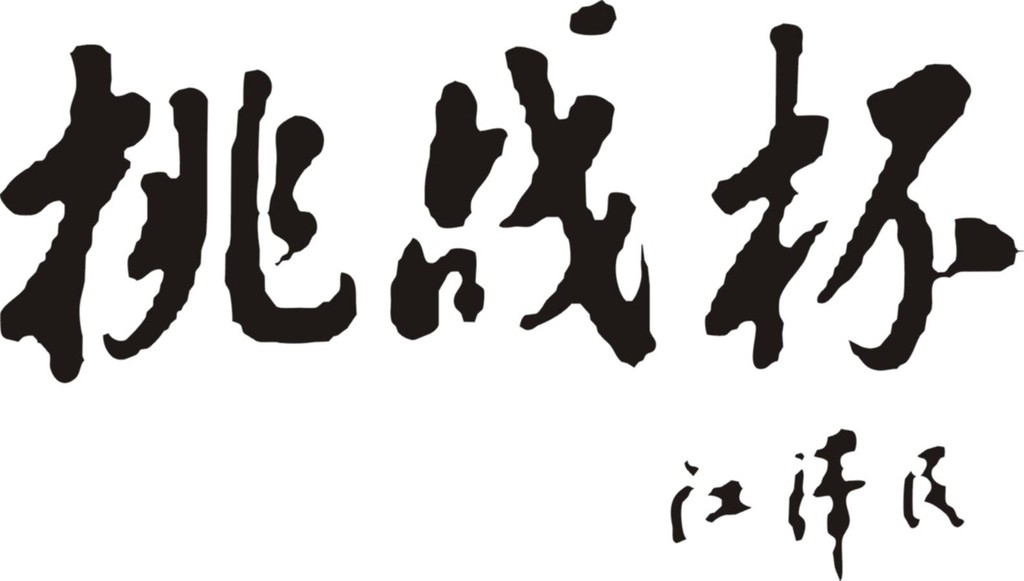 挑战杯
江泽民